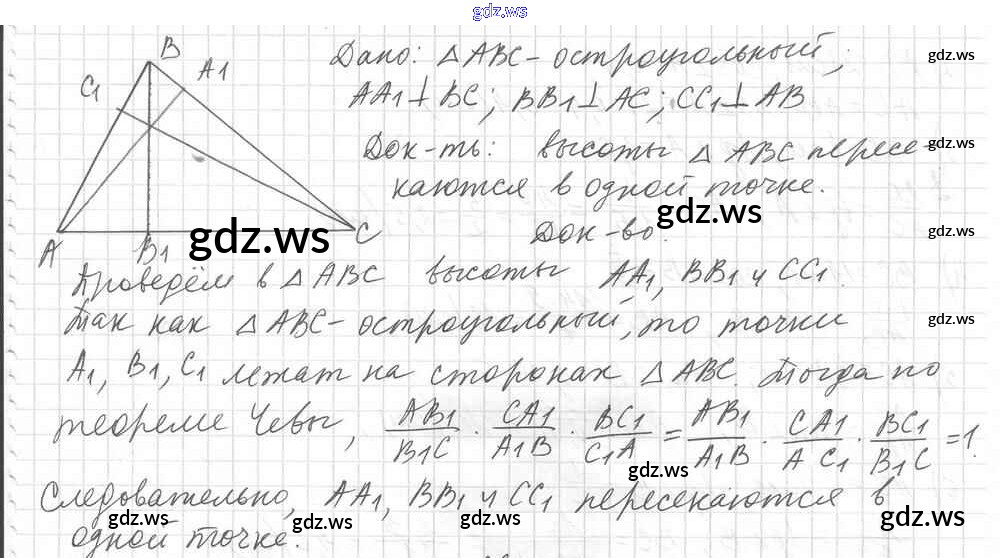 gdz.ws
B
A1
C1
A
B1
C
Дано: △ABC-остроугольный;
AA1⊥BC; BB1⊥AC; CC1⊥AB
gdz.ws
Док-ть: высоты △ABC пересе-
каются в одной точке.
gdz.ws
gdz.ws
gdz.ws
Док-во:
gdz.ws
Проведём в △ABC высоты AA1, BB1 и CC1.
Так как △ABC-остроугольный, то точки
gdz.ws
A1, B1, C1 лежат на сторонах △ABC. Тогда по
теореме Чевы, AB1/B1C · CA1/A1B · BC1/C1A = AB1/A1B · CA1/AC1 · BC1/B1C = 1.
gdz.ws
Следовательно, AA1, BB1 и CC1 пересекаются в
gdz.ws
gdz.ws
gdz.ws
gdz.ws
одной точке.